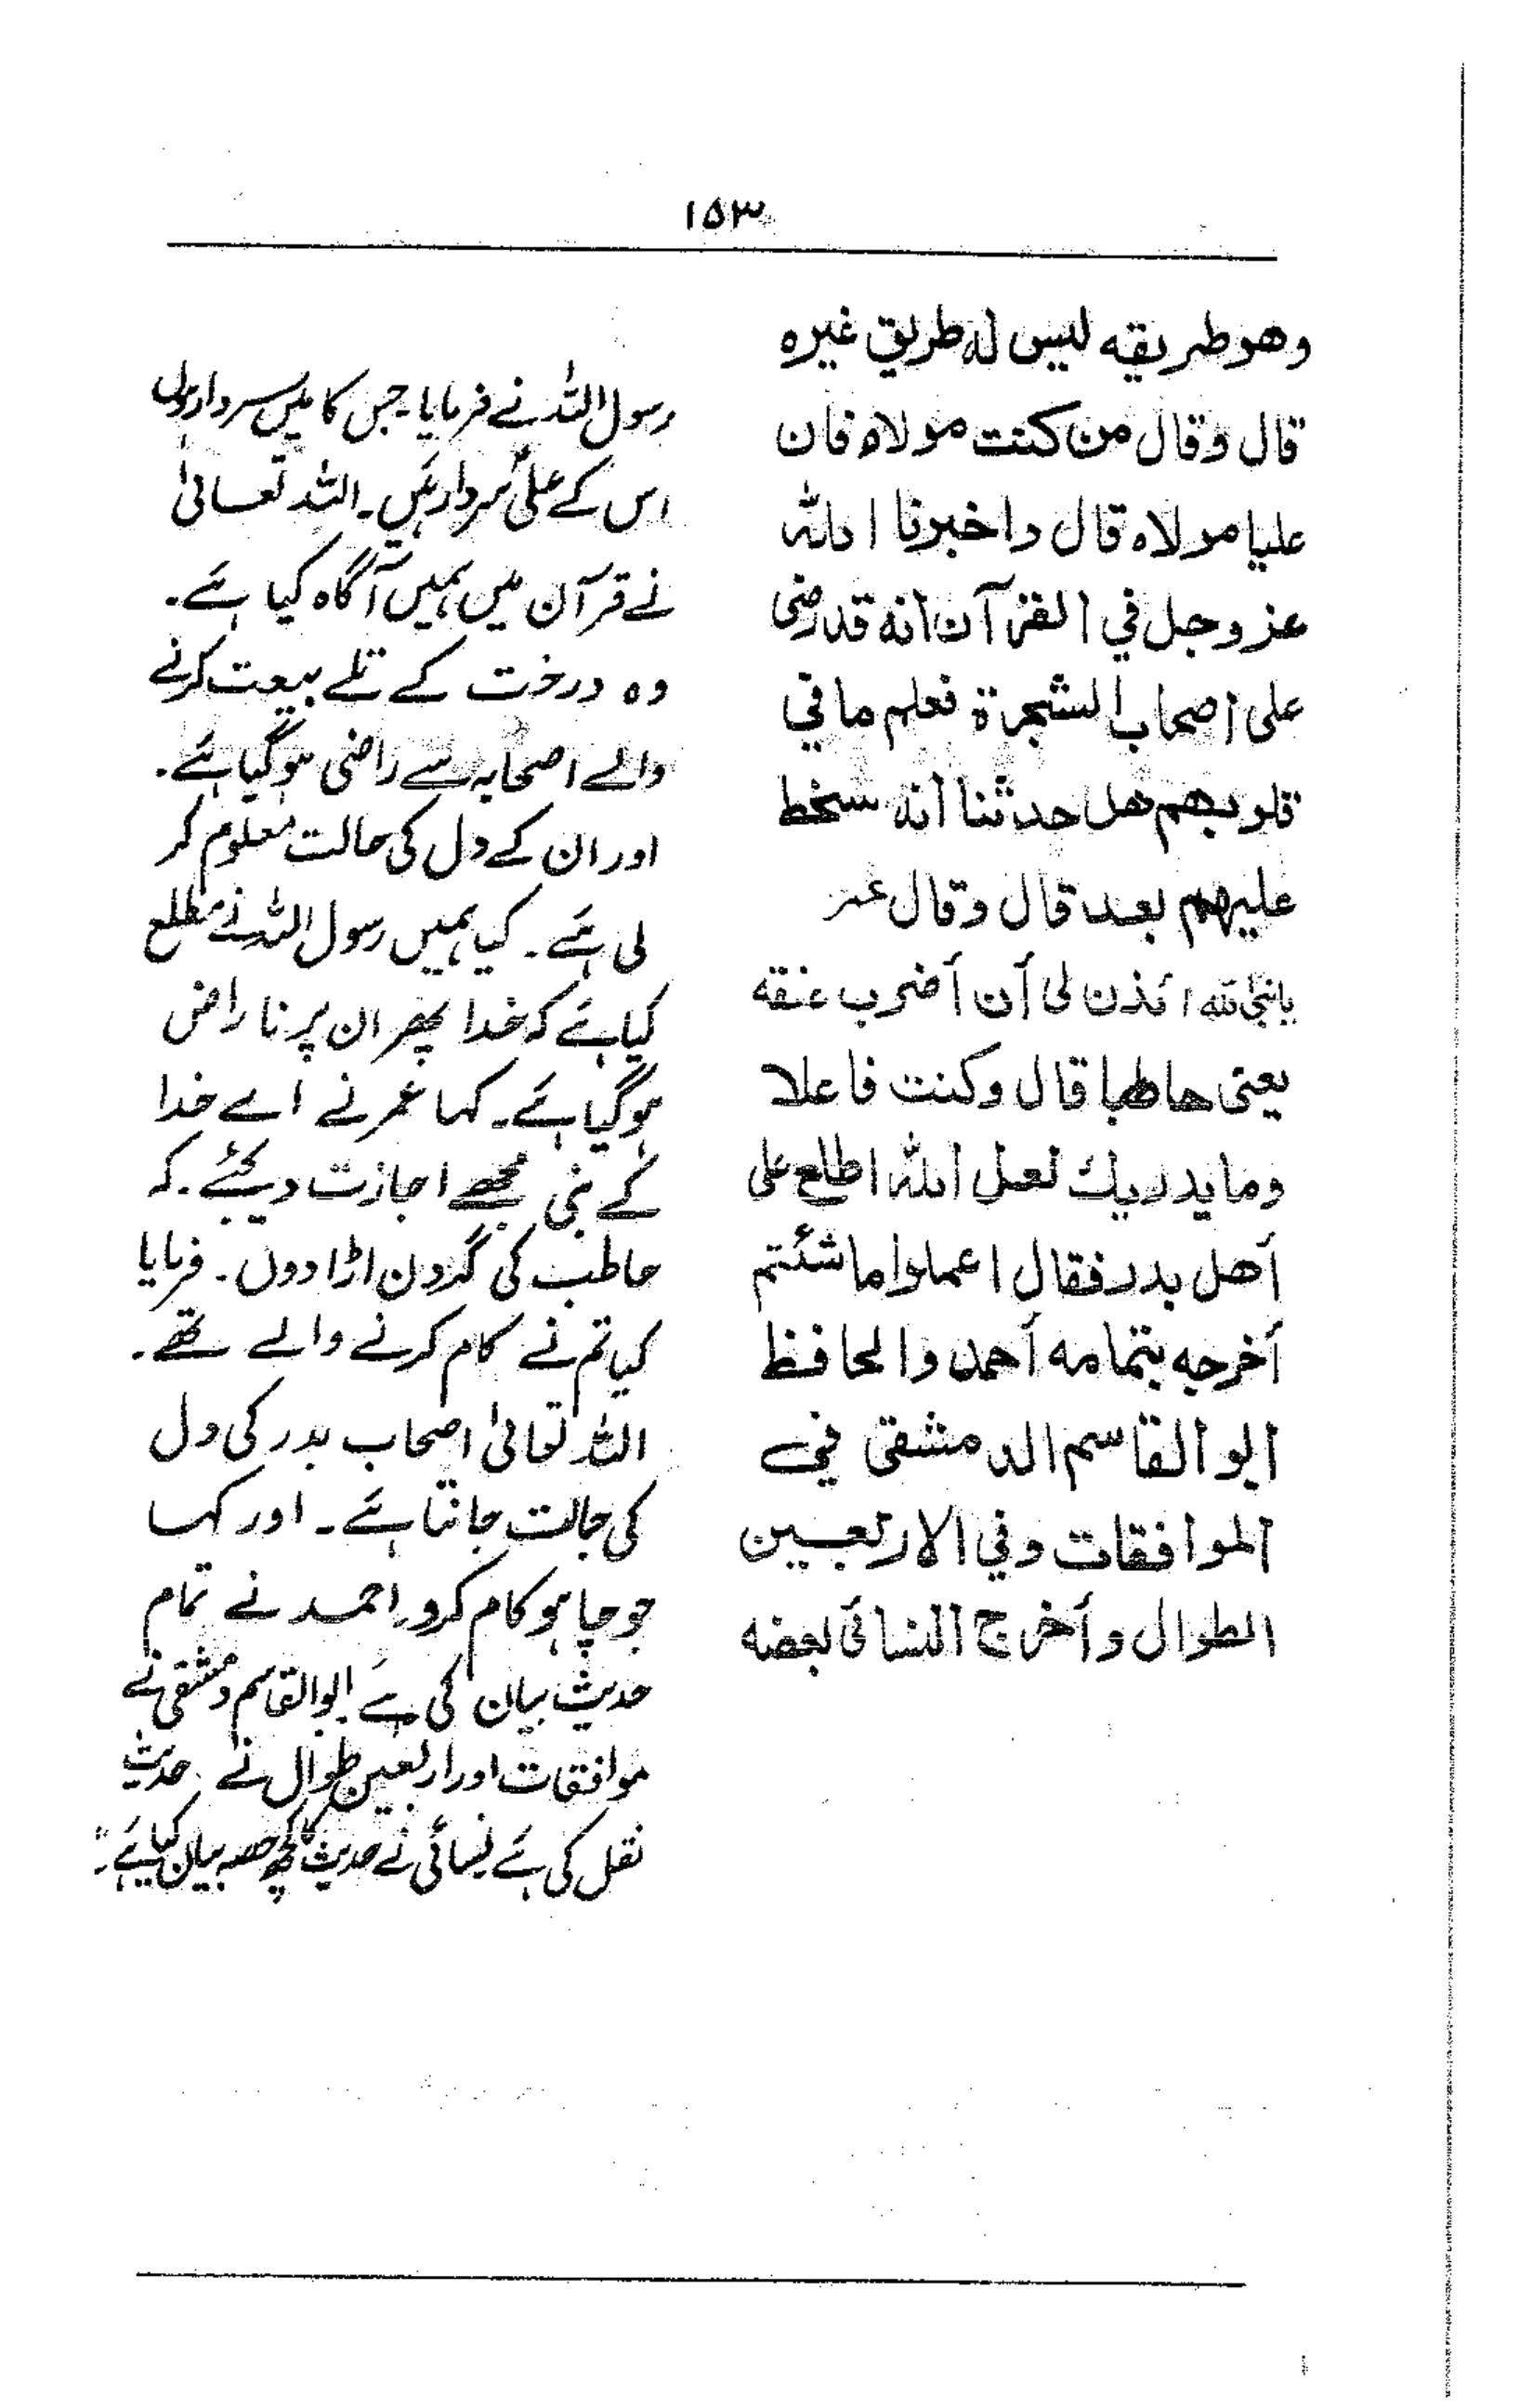 ۱۵۳
وهو طريقه ليس له طريق غيره
قال وقال من كنت مولاه فان
عليا مولاه قال واخبرنا الله
عز وجل في القرآن أنه قد رضى
على اصحاب الشجرة فعلم ما في
قلوبهم هل حدثنا أنه سخط
عليهم بعد قال وقال عمر
يا نبي الله ائذن لى أن أضرب عنقه
يعنى حاطبا قال وكنت فاعلا
وما يدريك لعل الله اطلع على
أهل بدر فقال اعملوا ما شئتم
أخرجه بتمامه أحمد والحافظ
ابو القاسم الدمشقى في
الموافقات وفي الاربعين
الطوال وأخرج النسائى بعضه
رسول اللہ نے فرمایا۔ جس کا میں سردار ہوں
اس کے علیؑ سردار ہیں۔ اللہ تعالیٰ
نے قرآن میں ہمیں آگاہ کیا ہے۔
وہ درخت کے تلے بیعت کرنے
والے اصحابہ سے راضی ہوگیا ہے۔
اور ان کے دل کی حالت معلوم کر
لی ہے۔ کیا ہمیں رسول اللہ نے مطلع
کیا ہے کہ خدا پھر ان پر ناراض
ہوگیا ہے۔ کہا عمر نے اے خدا
کے نبی مجھے اجازت دیجئے۔ کہ
حاطب کی گردن اڑا دوں۔ فرمایا
کیا تم نے کام کرنے والے تھے۔
اللہ تعالیٰ اصحاب بدر کی دل
کی حالت جانتا ہے۔ اور کہا
جو چاہو کام کرو۔ احمد نے تمام
حدیث بیان کی ہے ابوالقاسم دمشقی نے
موافقات اور اربعین طوال نے حدیث
نقل کی ہے نسائی نے حدیث کا کچھ حصہ بیان کیا ہے۔